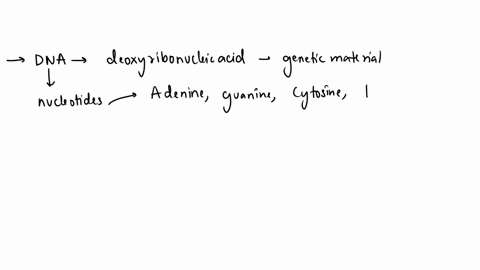 → DNA → deoxyribonucleic acid – genetic material
↓
nucleotides → Adenine, guanine, Cytosine, |